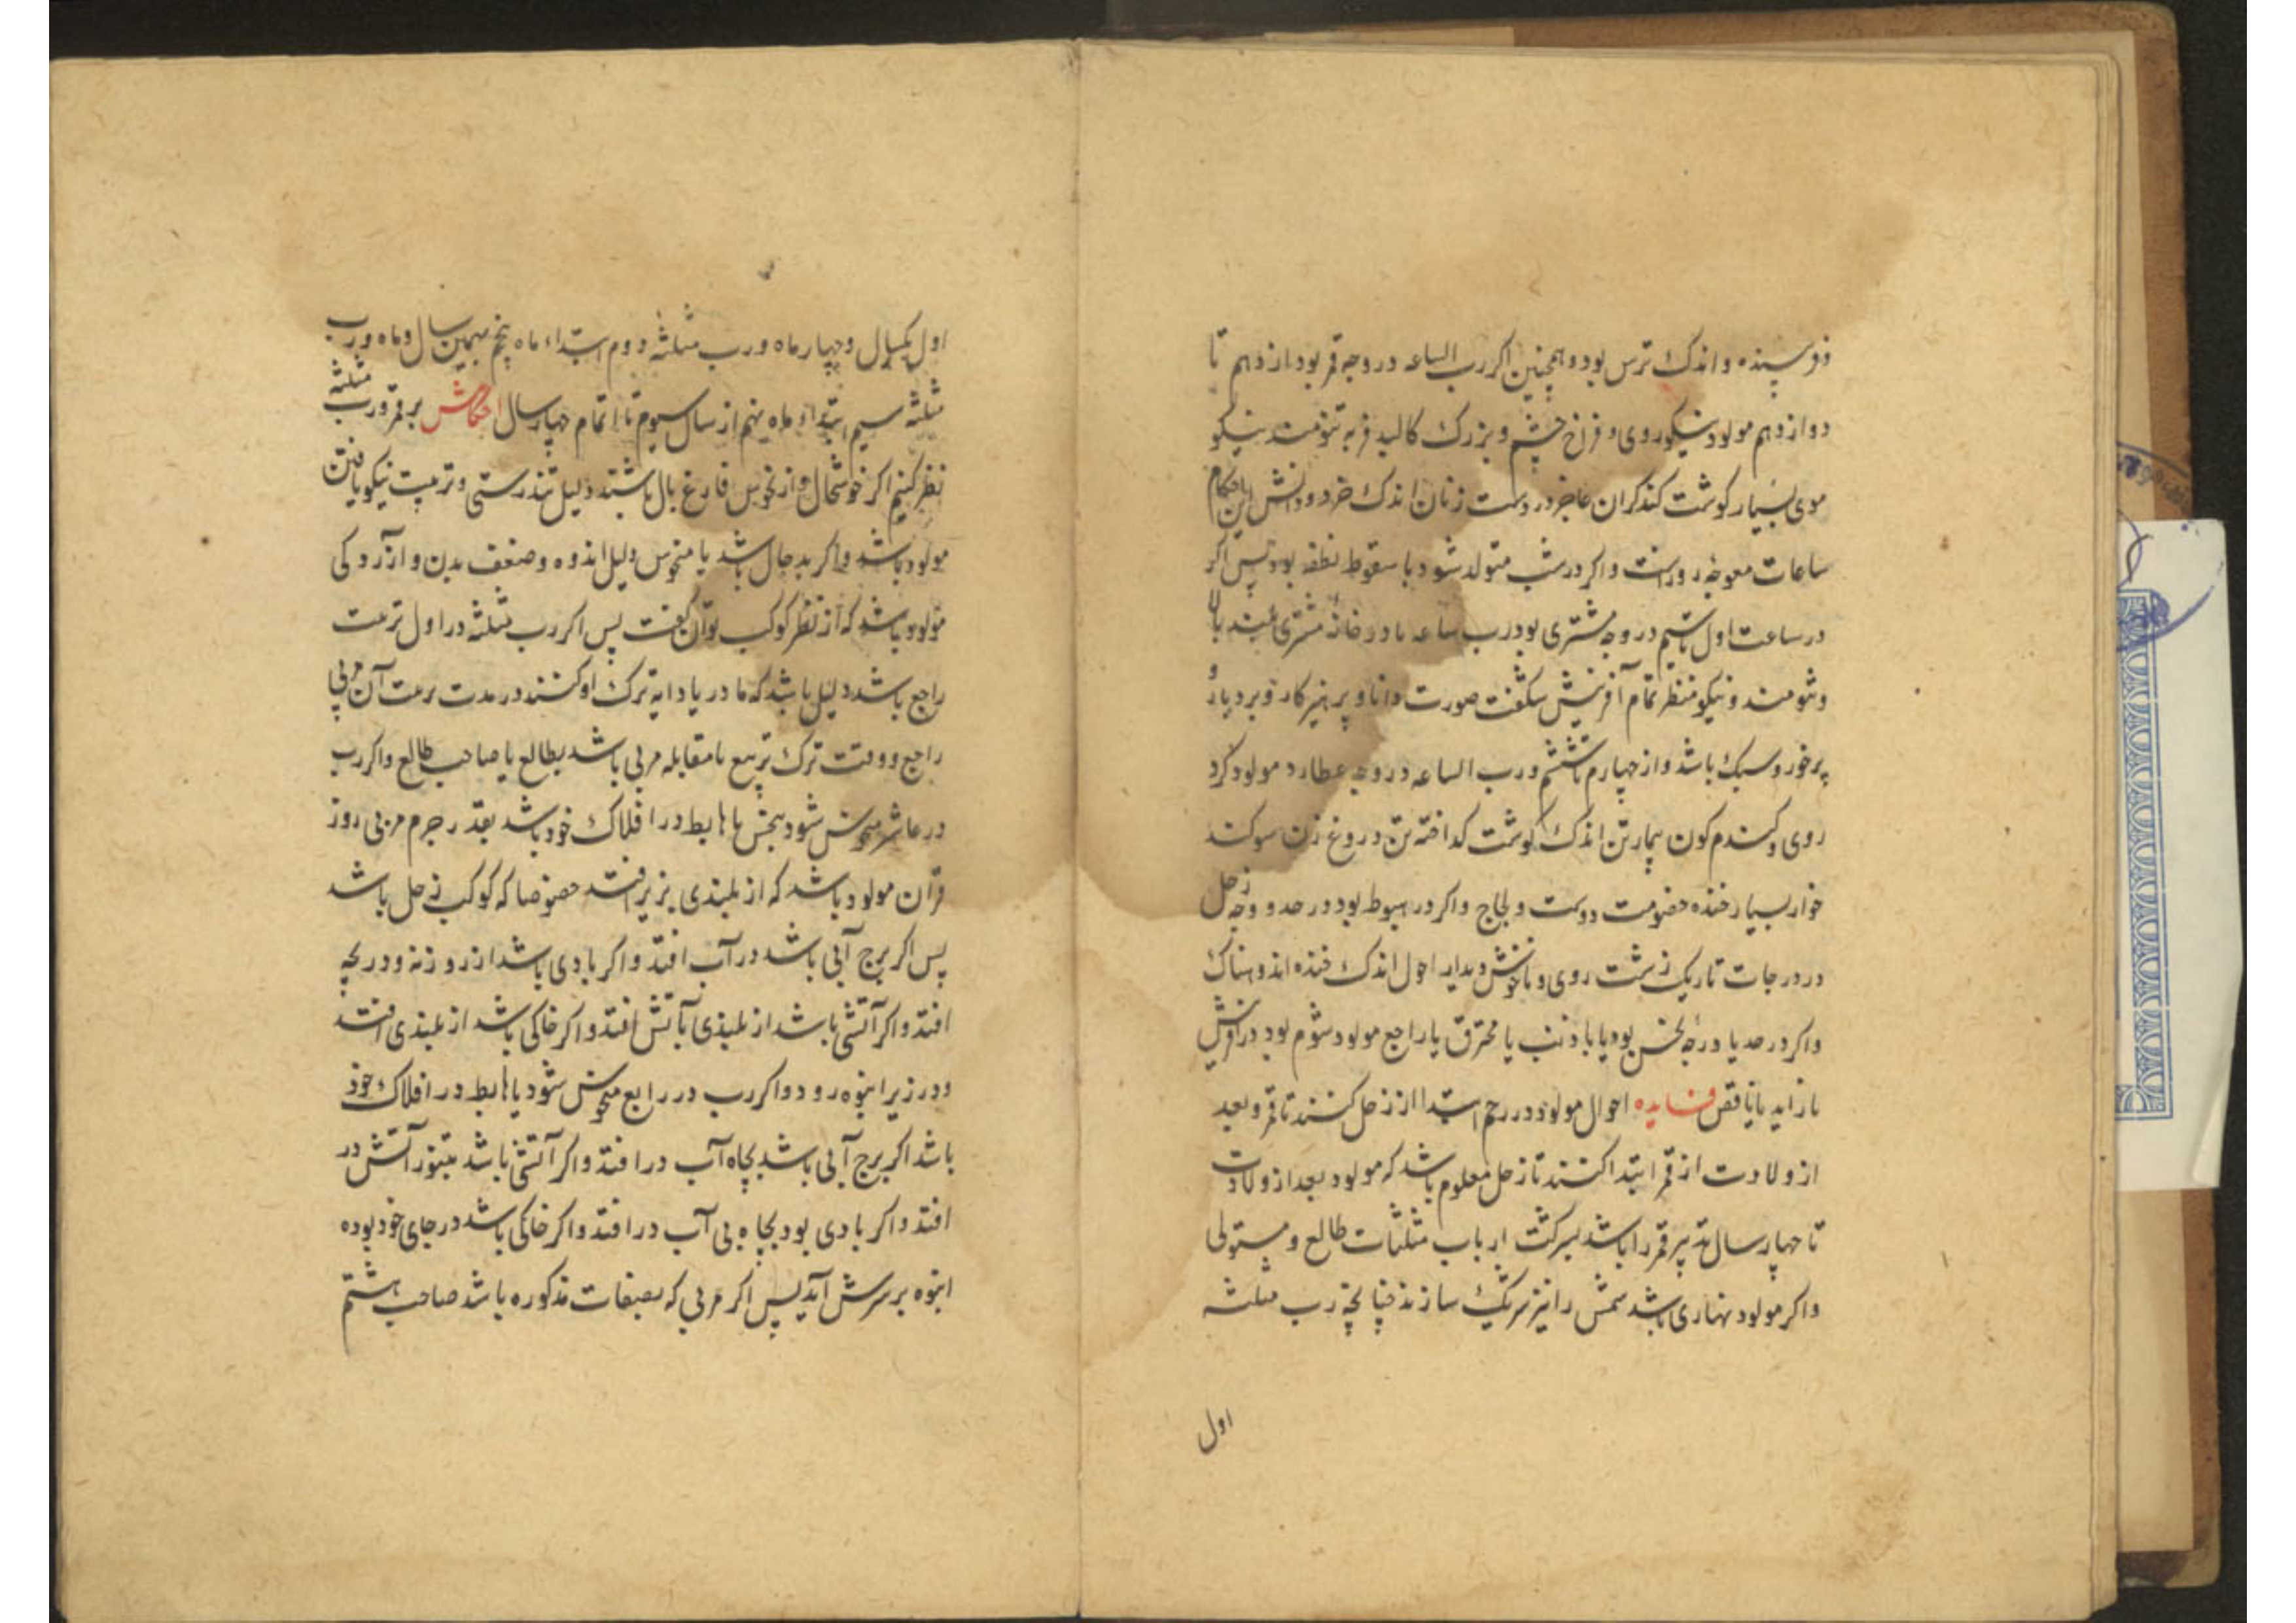 واندک ترس بود و همچنین اکر رب الساعه در وجه قمر بود از دهم تا
دوازدهم مولود نیکوروی و فراخ چشم و بزرک کالبد فربه تنومند نیکو
موی بسیار کوشت کندکران عاجز دوست زنان اندک خرد و دانش این احکام
ساعات معوجه روزاست و اکر در شب متولد شود یا سقوط نطفه بود پس اکر
در ساعت اول تا سیم در وجه مشتری بود رب ساعه یا در خانه مشتری
و تنومند و نیکو منظر تمام آفرینش شکفت صورت دانا و پرهیزکار و بردبار و
پرخور و سبک باشد و از چهارم تا ششم و رب الساعه در وجه عطارد مولود کرد
روی و کندم کون بیمارتن اندک کوشت کداخته تن دروغ زن سوکند
خوار بسیار خنده خصومت دوست و لجاج و اکر در هبوط بود در حد و وجه زحل
در درجات تاریک زشت روی و ناخوش دیدار احول اندک خنده اندوهناک
و اکر در حد یا درجه نحس بود یا با ذنب یا محترق یا راجع مولود شوم بود در آفرینش
یا زاید یا ناقص فایده احوال مولود در رحم ابتدا از زحل کنند تا قمر و بعد
از ولادت از قمر ابتدا کنند تا زحل معلوم باشد که مولود بعد از ولادت
تا چهار سال تدبیر قمر را باشد بشرکت ارباب مثلثات طالع و مستولی
و اکر مولود نهاری باشد شمس را نیز شریک سازند چنانچه رب مثلثه
اول
اول یکسال و چهار ماه و رب مثلثه دوم ابتداء ماه پنجم همین سال و ماه و رب
مثلثه سیم ابتداء ماه نهم از سال سیوم تا اتمام چهار سال احکامش بر قمر و رب مثلثه
نظر کنیم اکر خوشحال و از نحوس فارغ بال باشند دلیل تندرستی و تربیت نیکو یافتن
مولود باشد و اکر بدحال باشد یا منحوس دلیل اندوه و ضعف بدن و آزردکی
مولود باشد که از نظر کوکب توان کفت پس اکر رب مثلثه در اول تربیت
راجع باشد دلیل باشد که مادر یا دایه ترک او کنند در مدت تربیت آن مربی
راجع و وقت ترک تربیع یا مقابله مربی باشد بطالع یا صاحب طالع و اکر رب
در عاشر منحوس شود بنحس یا هابط در افلاک خود باشد بقدر جرم مربی روز
قران مولود باشد که از بلندی بزیر افتد خصوصا که کوکب زحل باشد
پس اکر برج آبی باشد در آب افتد و اکر بادی باشد از روزنه و دریچه
افتد و اکر آتشی باشد از بلندی بآتش افتد و اکر خاکی باشد از بلندی افتد
و در زیر انبوه رود و اکر رب در رابع منحوس شود یا هابط در افلاک خود
باشد اکر برج آبی باشد بچاه آب در افتد و اکر آتشی باشد بتنور آتش در
افتد و اکر بادی بود بچاه بی آب در افتد و اکر خاکی باشد در جای خود بوده
انبوه بر سرش آید پس اکر مربی که بصفات مذکوره باشد صاحب هشتم